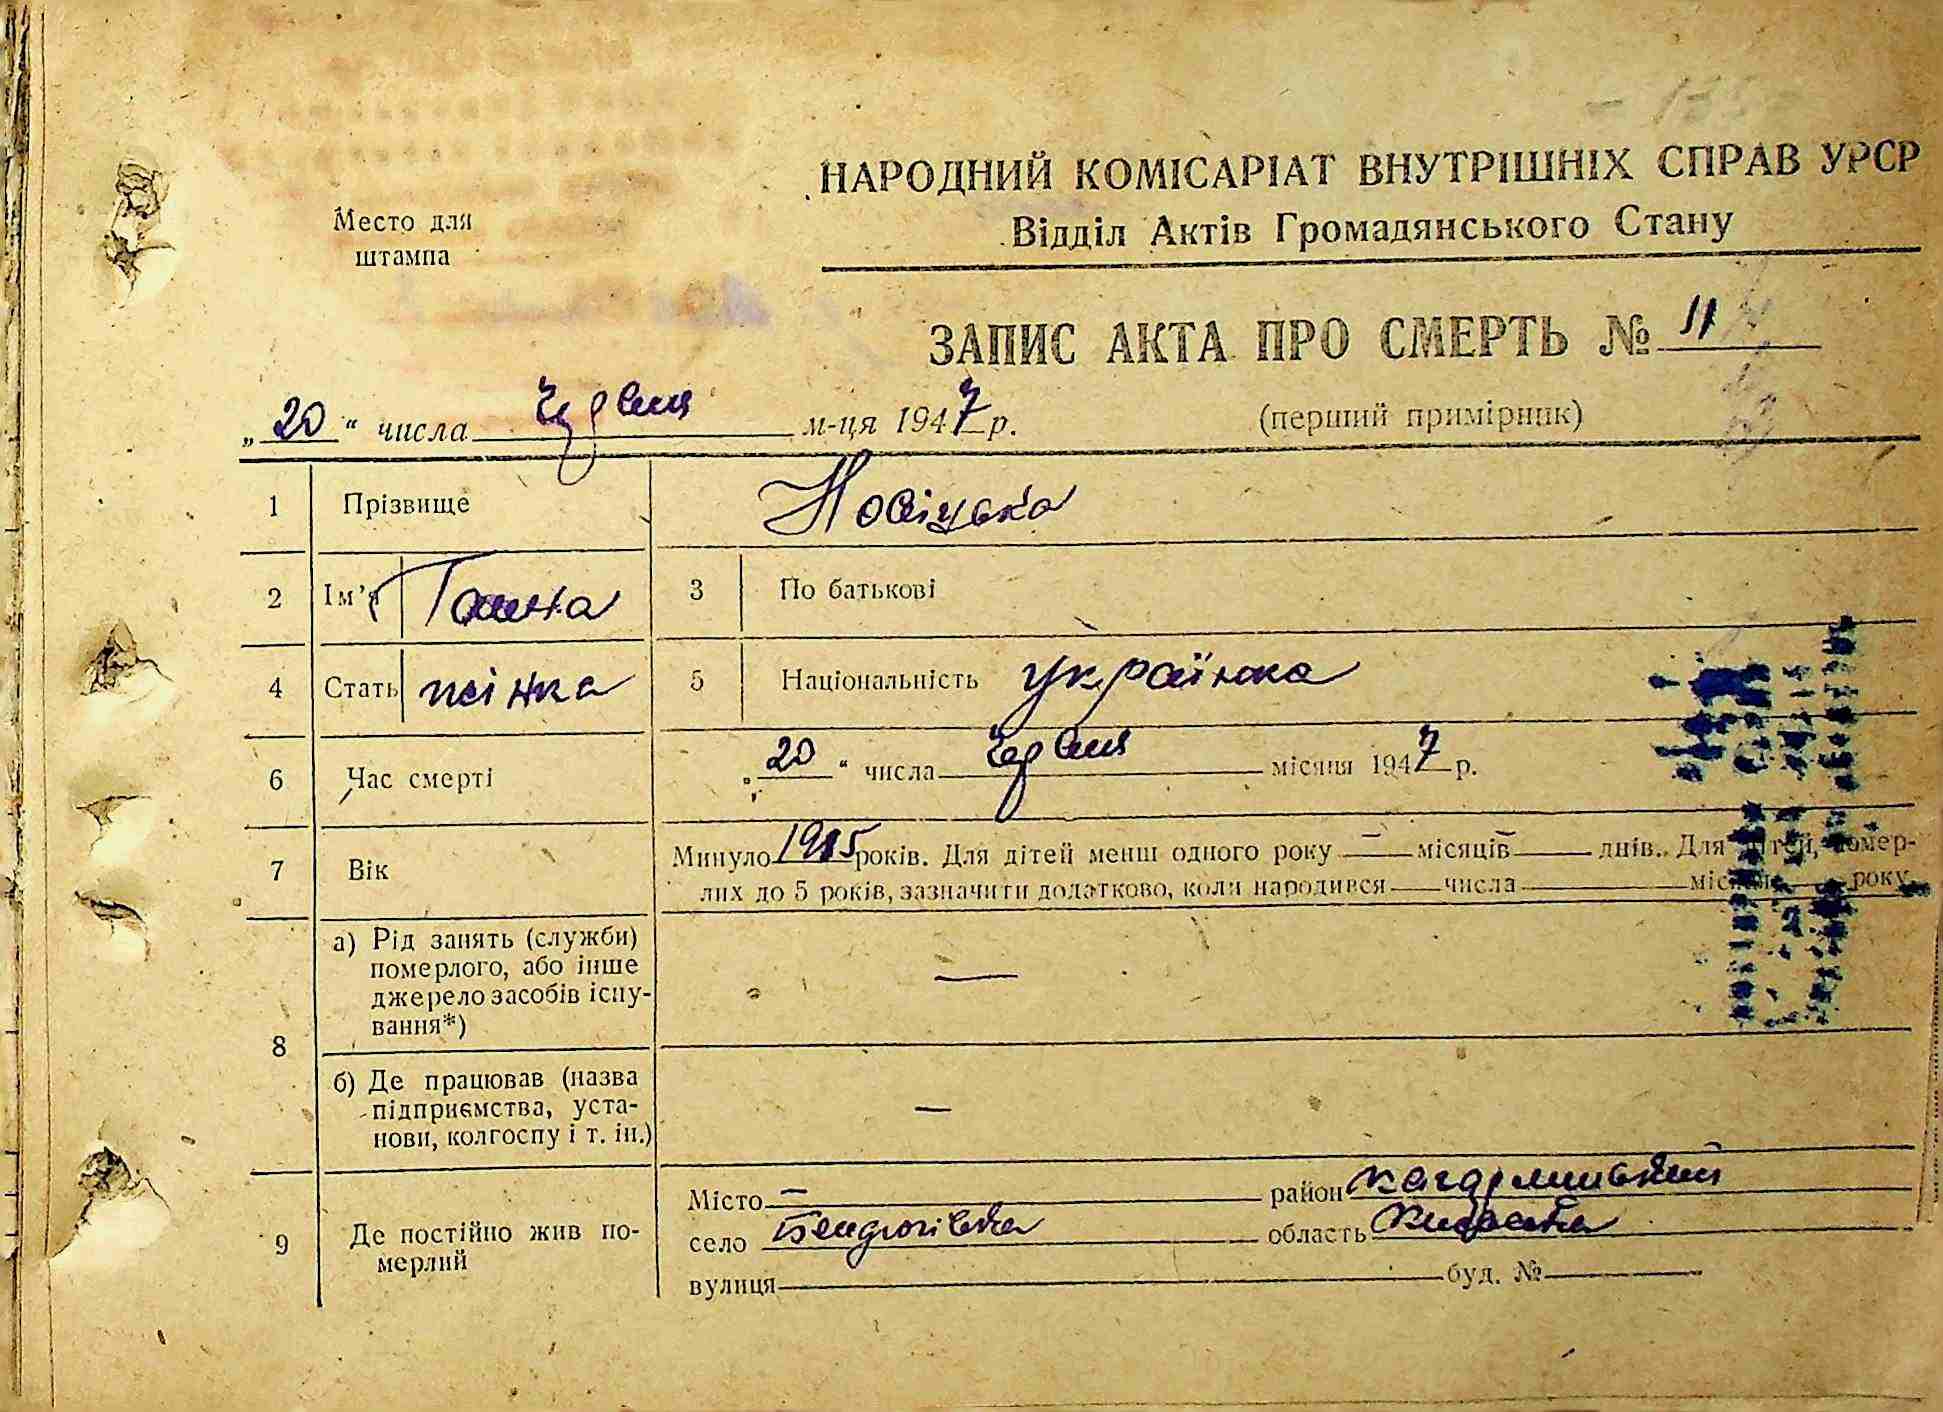 НАРОДНИЙ КОМІСАРІАТ ВНУТРІШНІХ СПРАВ УРСР
Відділ Актів Громадянського Стану
Место для
штампа
ЗАПИС АКТА ПРО СМЕРТЬ № 11
„20“ числа червня м-ця 1947 р.
(перший примірник)
1 Прізвище Носіцька
2 Ім'я Ганна 3 По батькові
4 Стать жінка 5 Національність українка
6 Час смерті „20“ числа червня місяця 1947 р.
7 Вік Минуло 1915 років. Для дітей менш одного року — місяців — днів. Для дітей, помер-
лих до 5 років, зазначити додатково, коли народився — числа — місяця — року
8 а) Рід занять (служби)
померлого, або інше
джерело засобів існу-
вання*) —
б) Де працював (назва
підприємства, уста-
нови, колгоспу і т. ін.) —
9 Де постійно жив по-
мерлий
Місто — район
село область Київська
вулиця буд. №